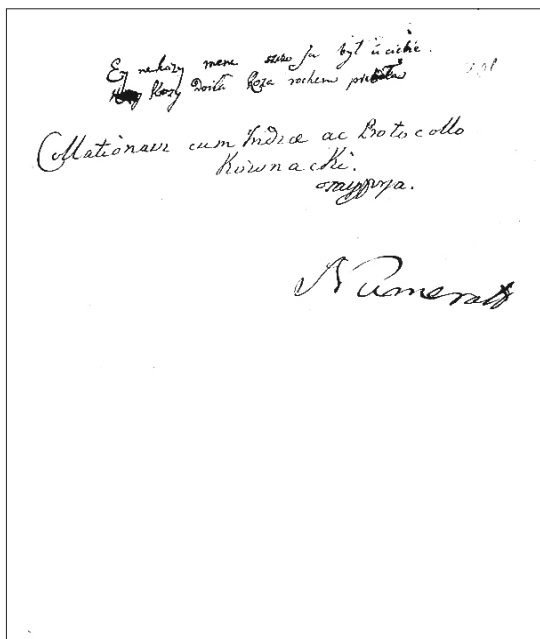 Ey nekazy mene szczo ja był u ciebie.
Kozy Doiła Koza rochem
Collationavi cum Indice ac Protocollo
Kurnacki.
mppya.
Numerat